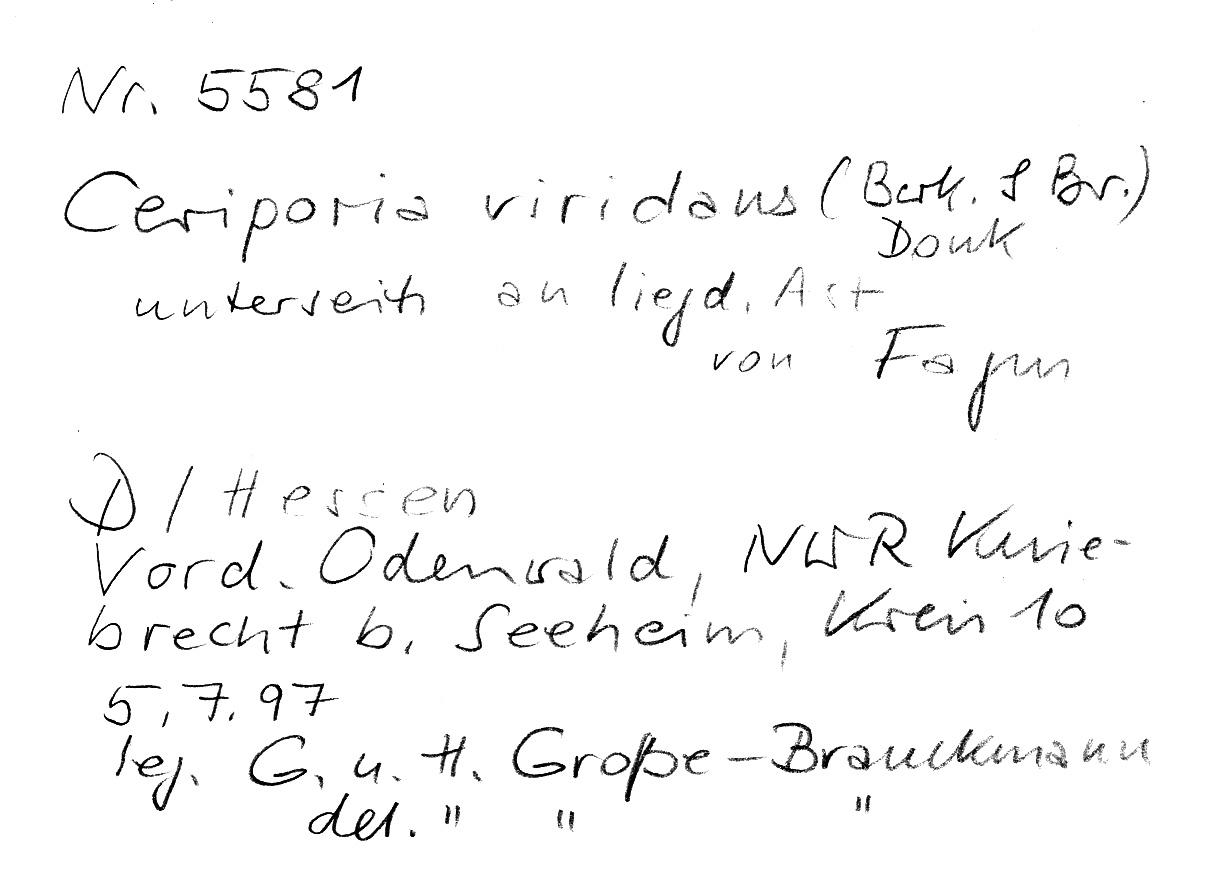 Nr. 5581
Ceriporia viridans (Berk. & Br.)
Donk
unterseits an liegd. Ast
von Fagus
D / Hessen
Vord. Odenwald, NWR Knie-
brecht b. Seeheim, Kreis 10
5.7.97
leg. G. u. H. Große-Brauckmann
det. " " "